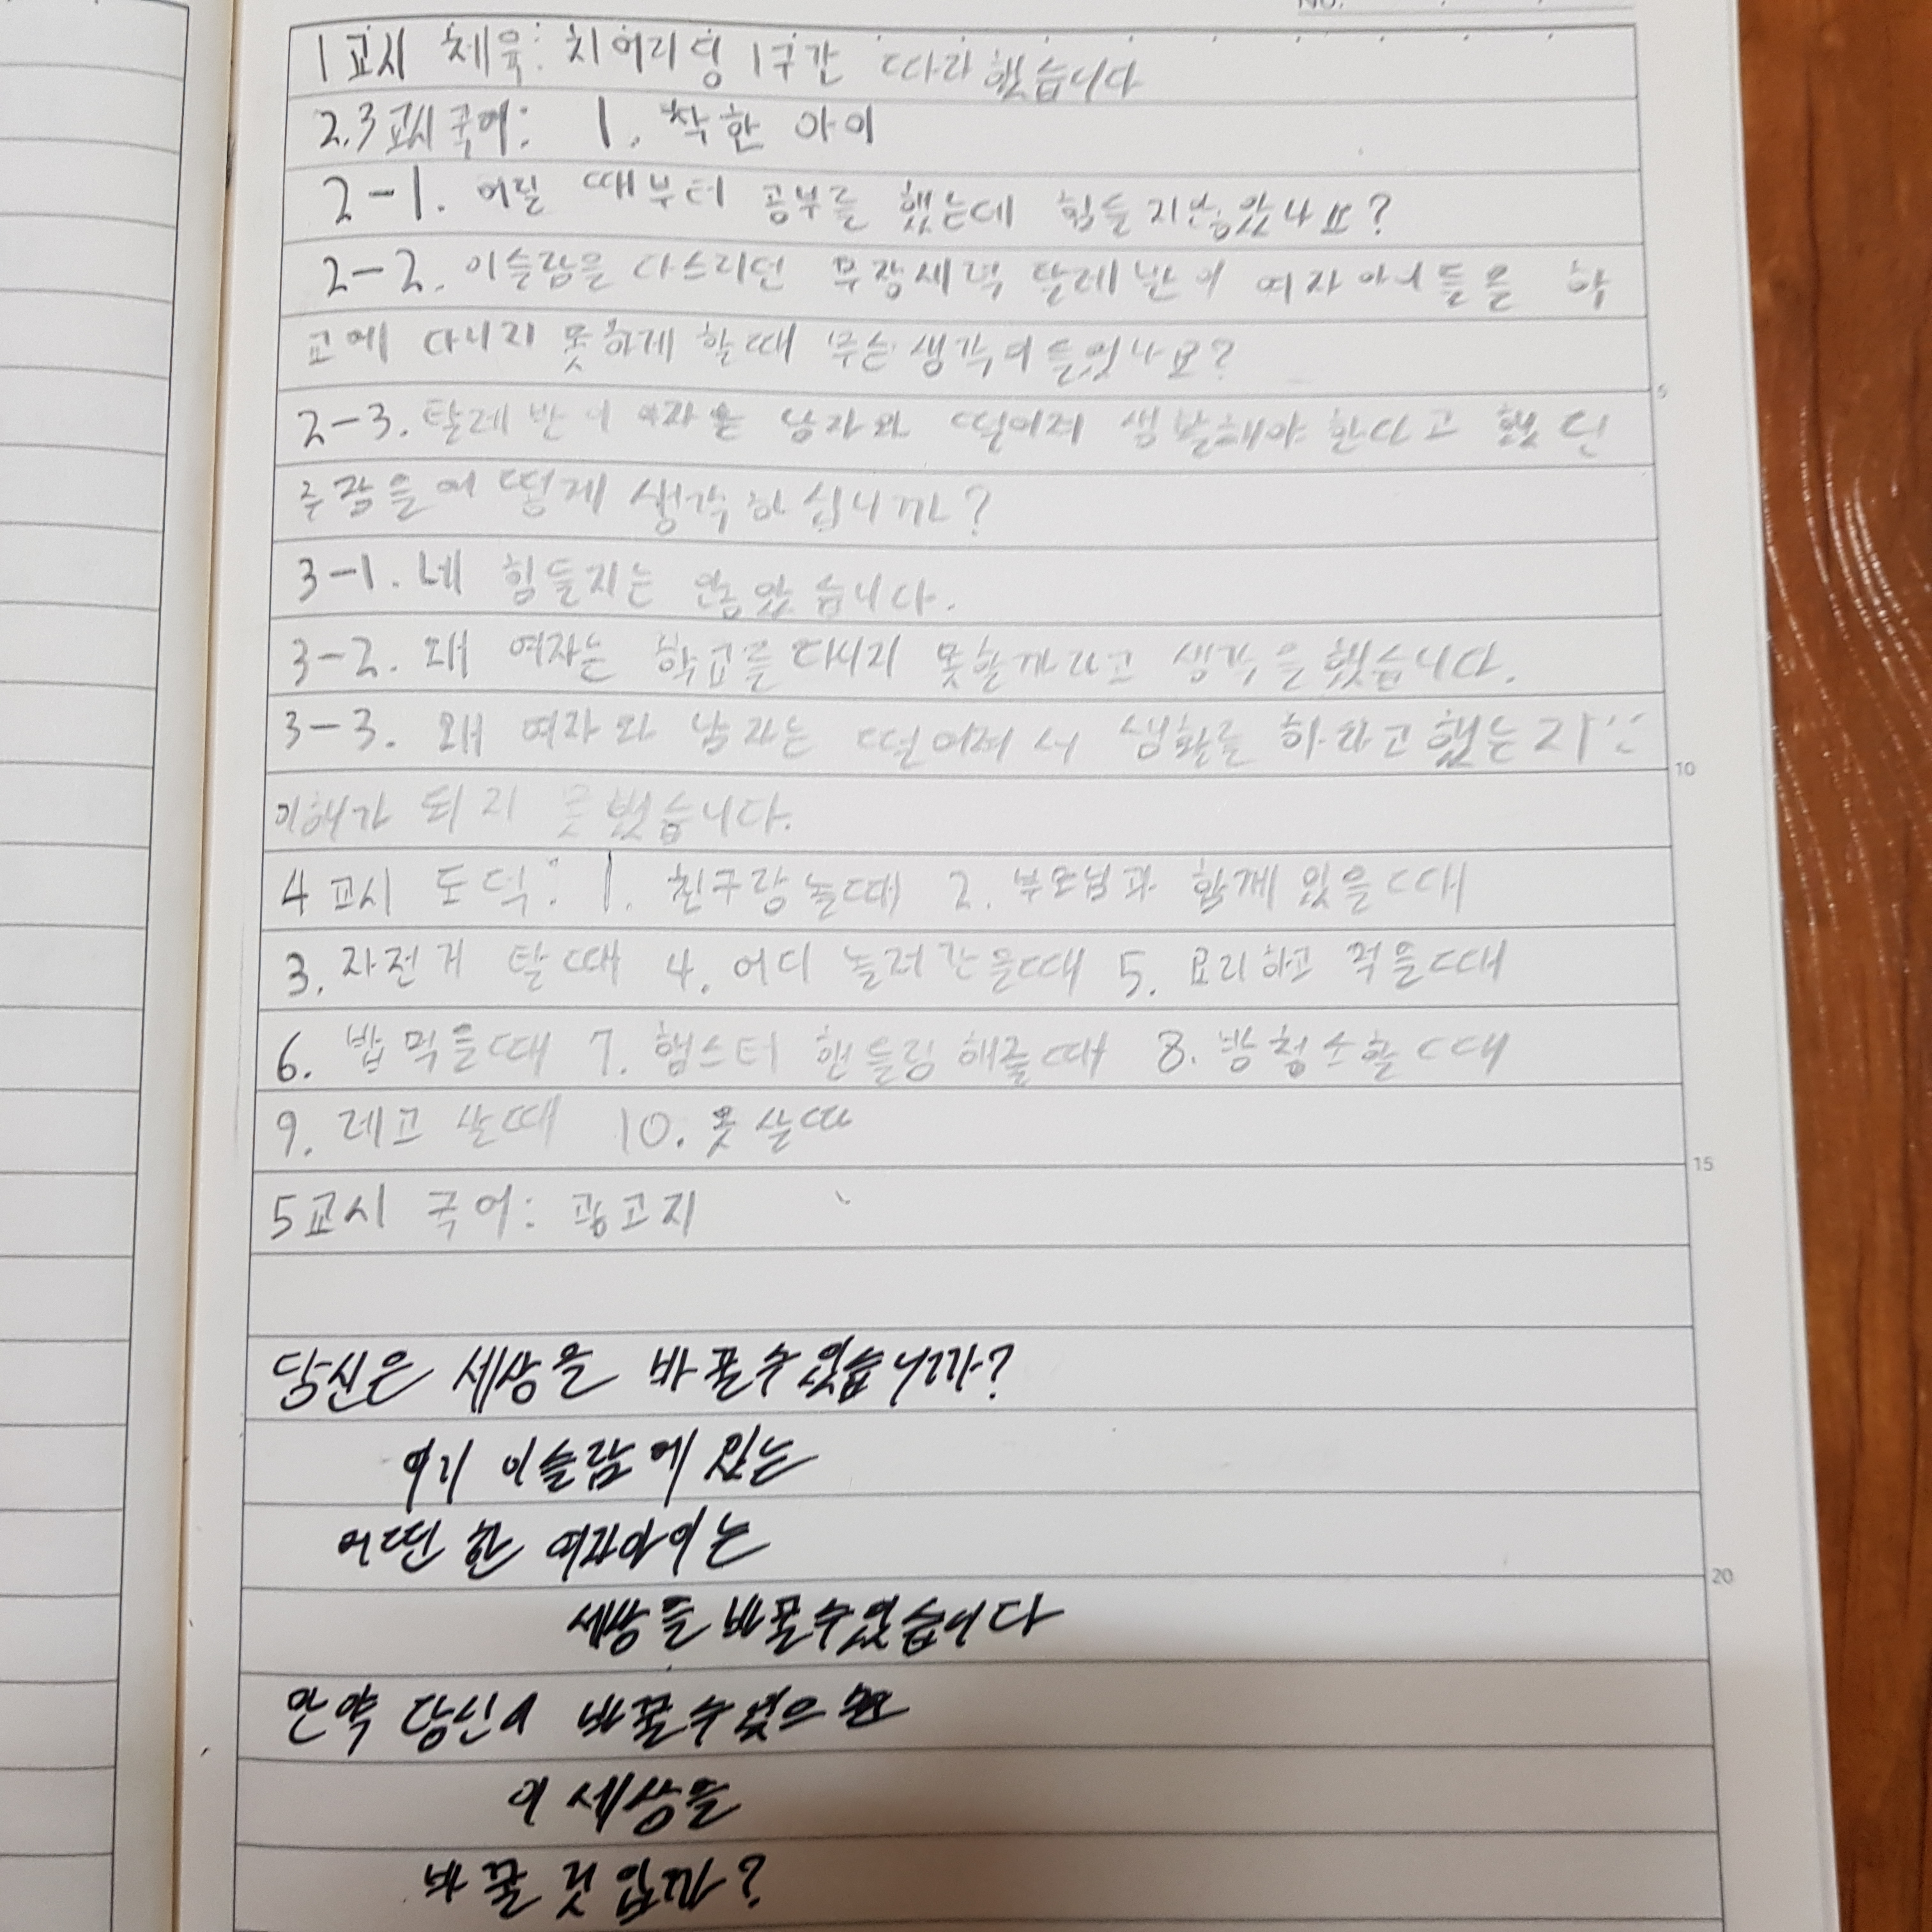 1교시 체육: 치어리딩 1구간 따라했습니다
2.3교시 국어: 1. 착한 아이
2-1. 어릴 때부터 공부를 했는데 힘들지않았나요?
2-2. 이슬람을 다스리던 무장세력 탈레반이 여자아이들을 학
교에 다니지 못하게 할때 무슨생각이들었나요?
2-3. 탈레반이 여자는 남자와 떨어져 생활해야 한다고 했던
주장을 어떻게 생각하십니까?
3-1. 네 힘들지는 않았습니다.
3-2. 왜 여자는 학교를 다니지 못할까라고 생각을했습니다.
3-3. 왜 여자와 남자는 떨어져서 생활를 하라고했는지
이해가 되지 못했습니다.
4교시 도덕: 1. 친구랑놀때 2. 부모님과 함께 있을때
3. 자전거 탈때 4. 어디 놀러간을때 5. 요리하고 먹을때
6. 밥먹을때 7. 햄스터 핸들링해줄때 8. 방청소할때
9. 레고 살때 10. 옷살때
5교시 국어: 광고지
당신은 세상을 바꿀수있습니까?
여기 이슬람에 있는
어떤 한 여자아이는
세상을 바꿀수있습니다
만약 당신이 바꿀수있으면
이 세상을
바꿀것입까?
NO.
5
10
15
20